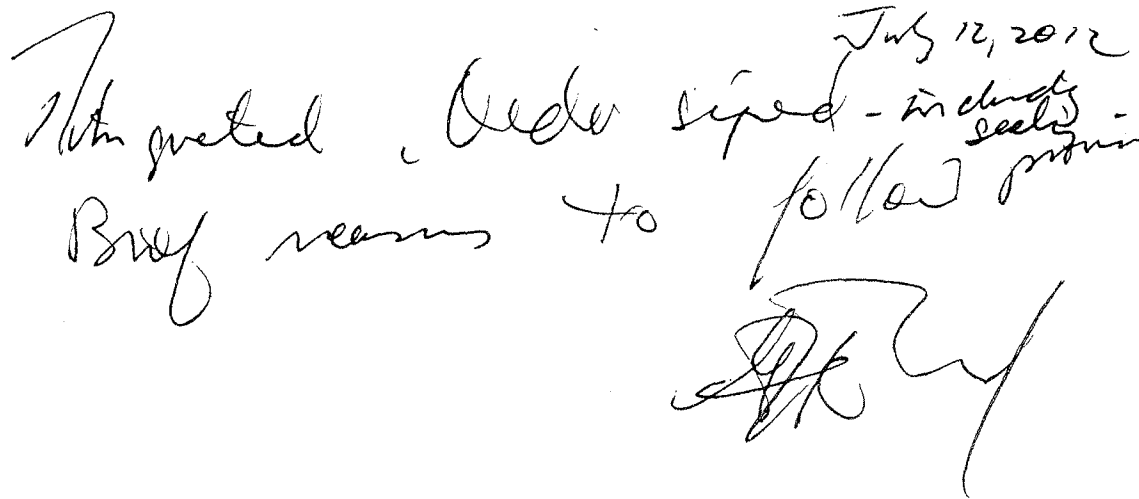 July 12, 2012
Motion granted. Order signed - including sealing provision
Brief reasons to follow